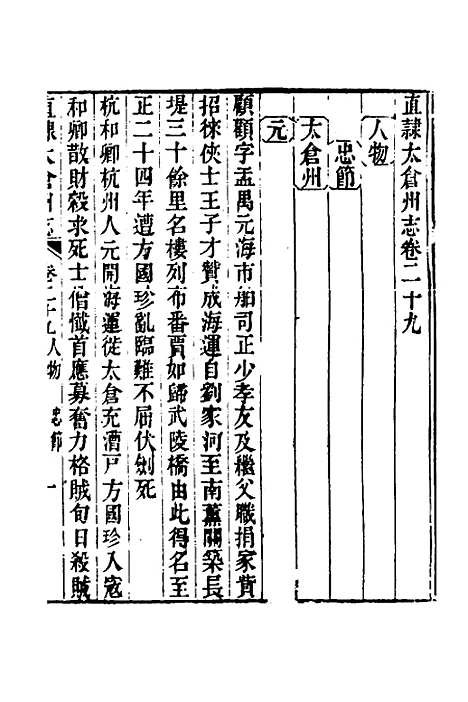 直隸太倉州志卷二十九
人物
忠節
太倉州
元
顧顯字孟禺元海市舶司正少孝友及繼父職捐家貲
招徠俠士王子才贊成海運自劉家河至南薰關築長
堤三十餘里名樓列布番賈如歸武陵橋由此得名至
正二十四年遭方國珍亂臨難不屈伏劍死
杭和卿杭州人元開海運徙太倉充漕戸方國珍入寇
和卿散財殺求死士僧懺首應募奮力格賊旬日殺賊
直隸太倉州志 卷二十九人物 忠節 一